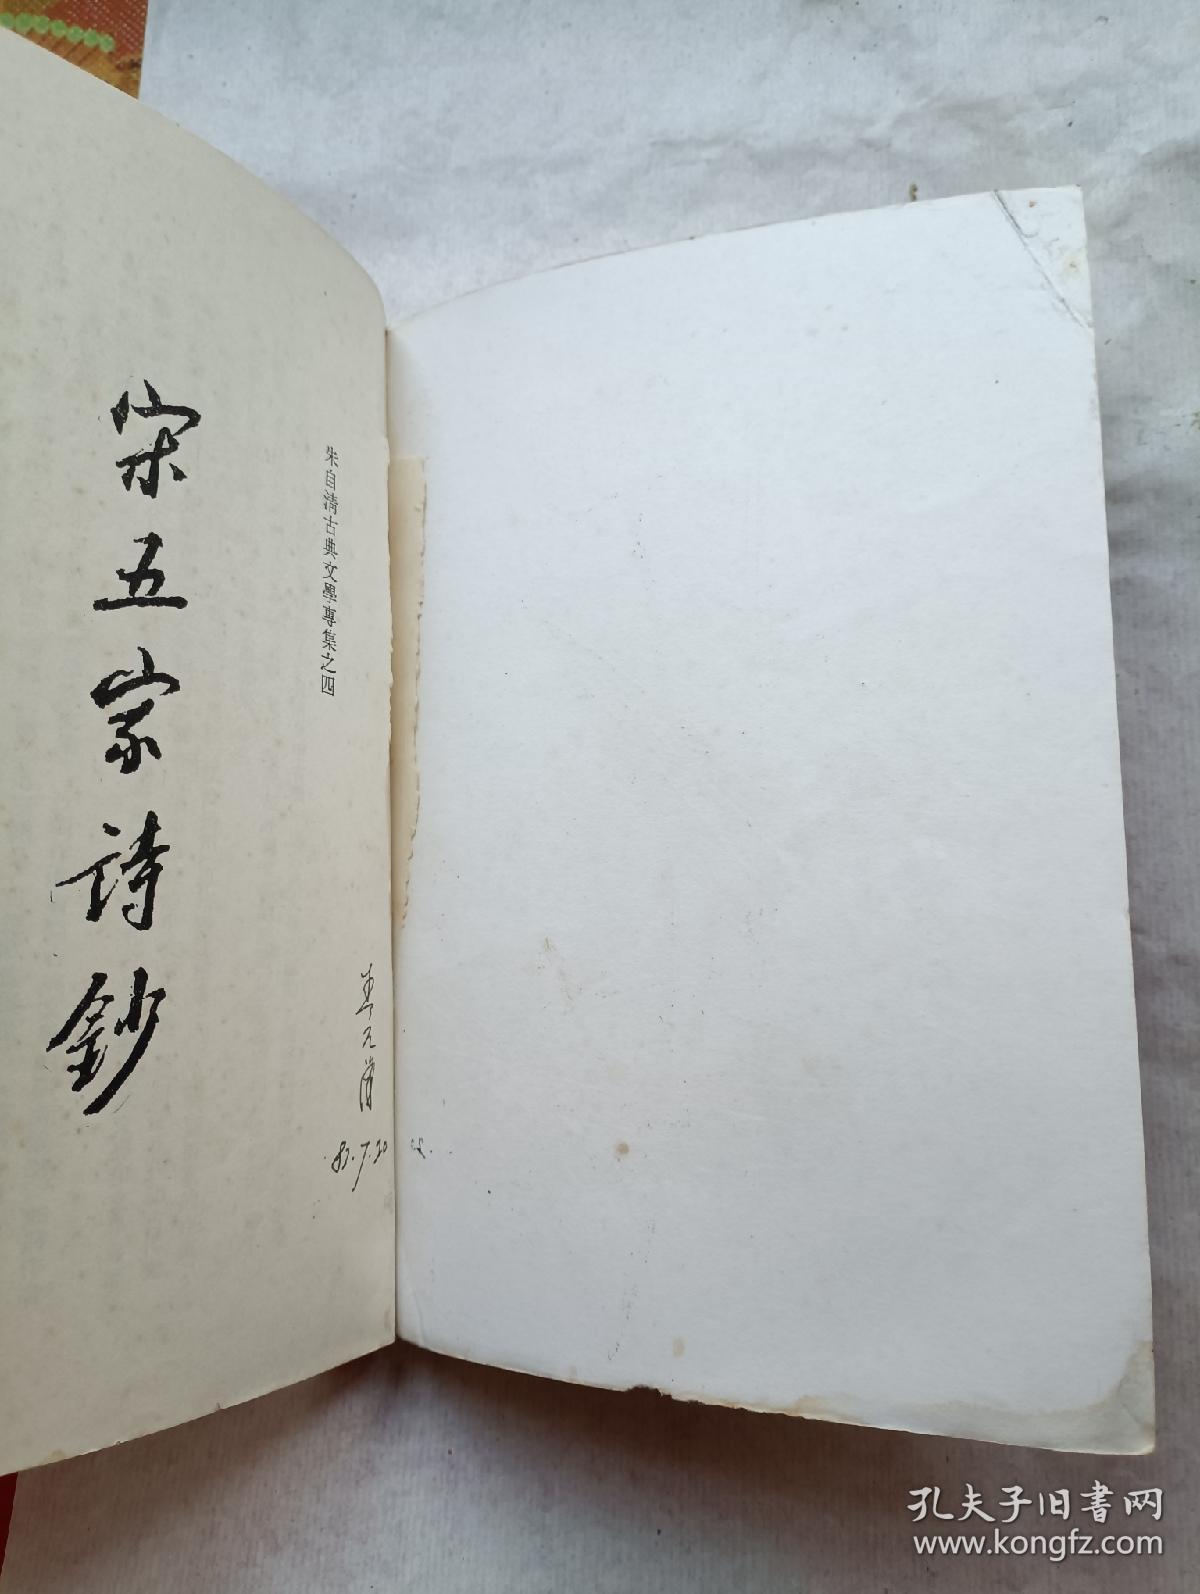 朱自清古典文學專集之四
宋五家詩鈔
孔夫子旧书网
www.kongfz.com